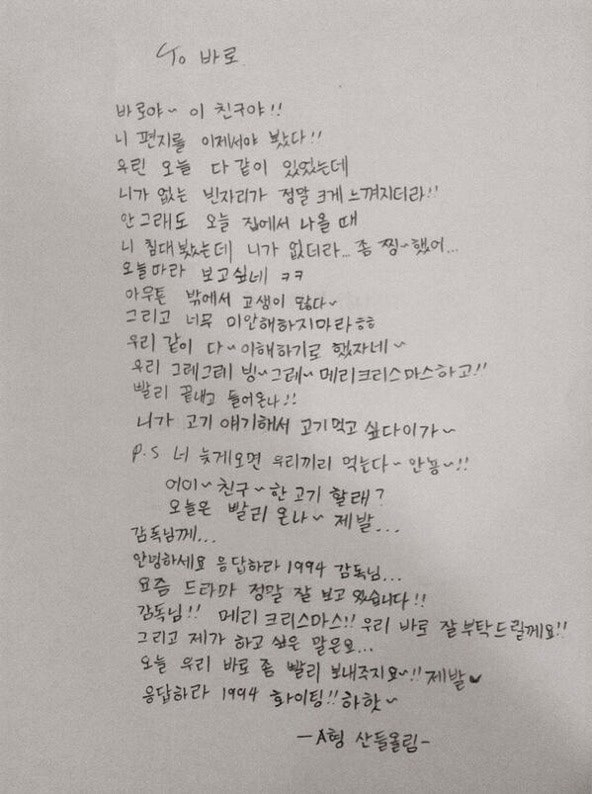 To 바로
바로야~ 이 친구야!!
니 편지를 이제서야 봤다!!
우린 오늘 다 같이 있었는데
니가 없는 빈자리가 정말 크게 느껴지더라!!
안그래도 오늘 집에서 나올 때
니 침대봤는데 니가 없더라... 좀 찡~했어...
오늘따라 보고싶네 ㅋㅋ
아무튼 밖에서 고생이 많다~
그리고 너무 미안해하지마라ㅎㅎ
우리 같이 다~이해하기로 했자네~
우리 그레그레 빙~그레~ 메리크리스마스하고!!
빨리 끝내고 들어온나!!
니가 고기 얘기해서 고기먹고 싶다이가~
P.S 너 늦게오면 우리끼리 먹는다~ 안뇽~!!
어이~ 친구~ 한 고기 할래?
오늘은 빨리 온나~ 제발...
감독님께...
안녕하세요 응답하라 1994 감독님...
요즘 드라마 정말 잘 보고 있습니다!!
감독님!! 메리 크리스마스!! 우리 바로 잘 부탁드릴께요!!
그리고 제가 하고 싶은 말은요...
오늘 우리 바로 좀 빨리 보내주지요~!! 제발♥
응답하라 1994 화이팅!! 하핫~
-A형 산들올림-